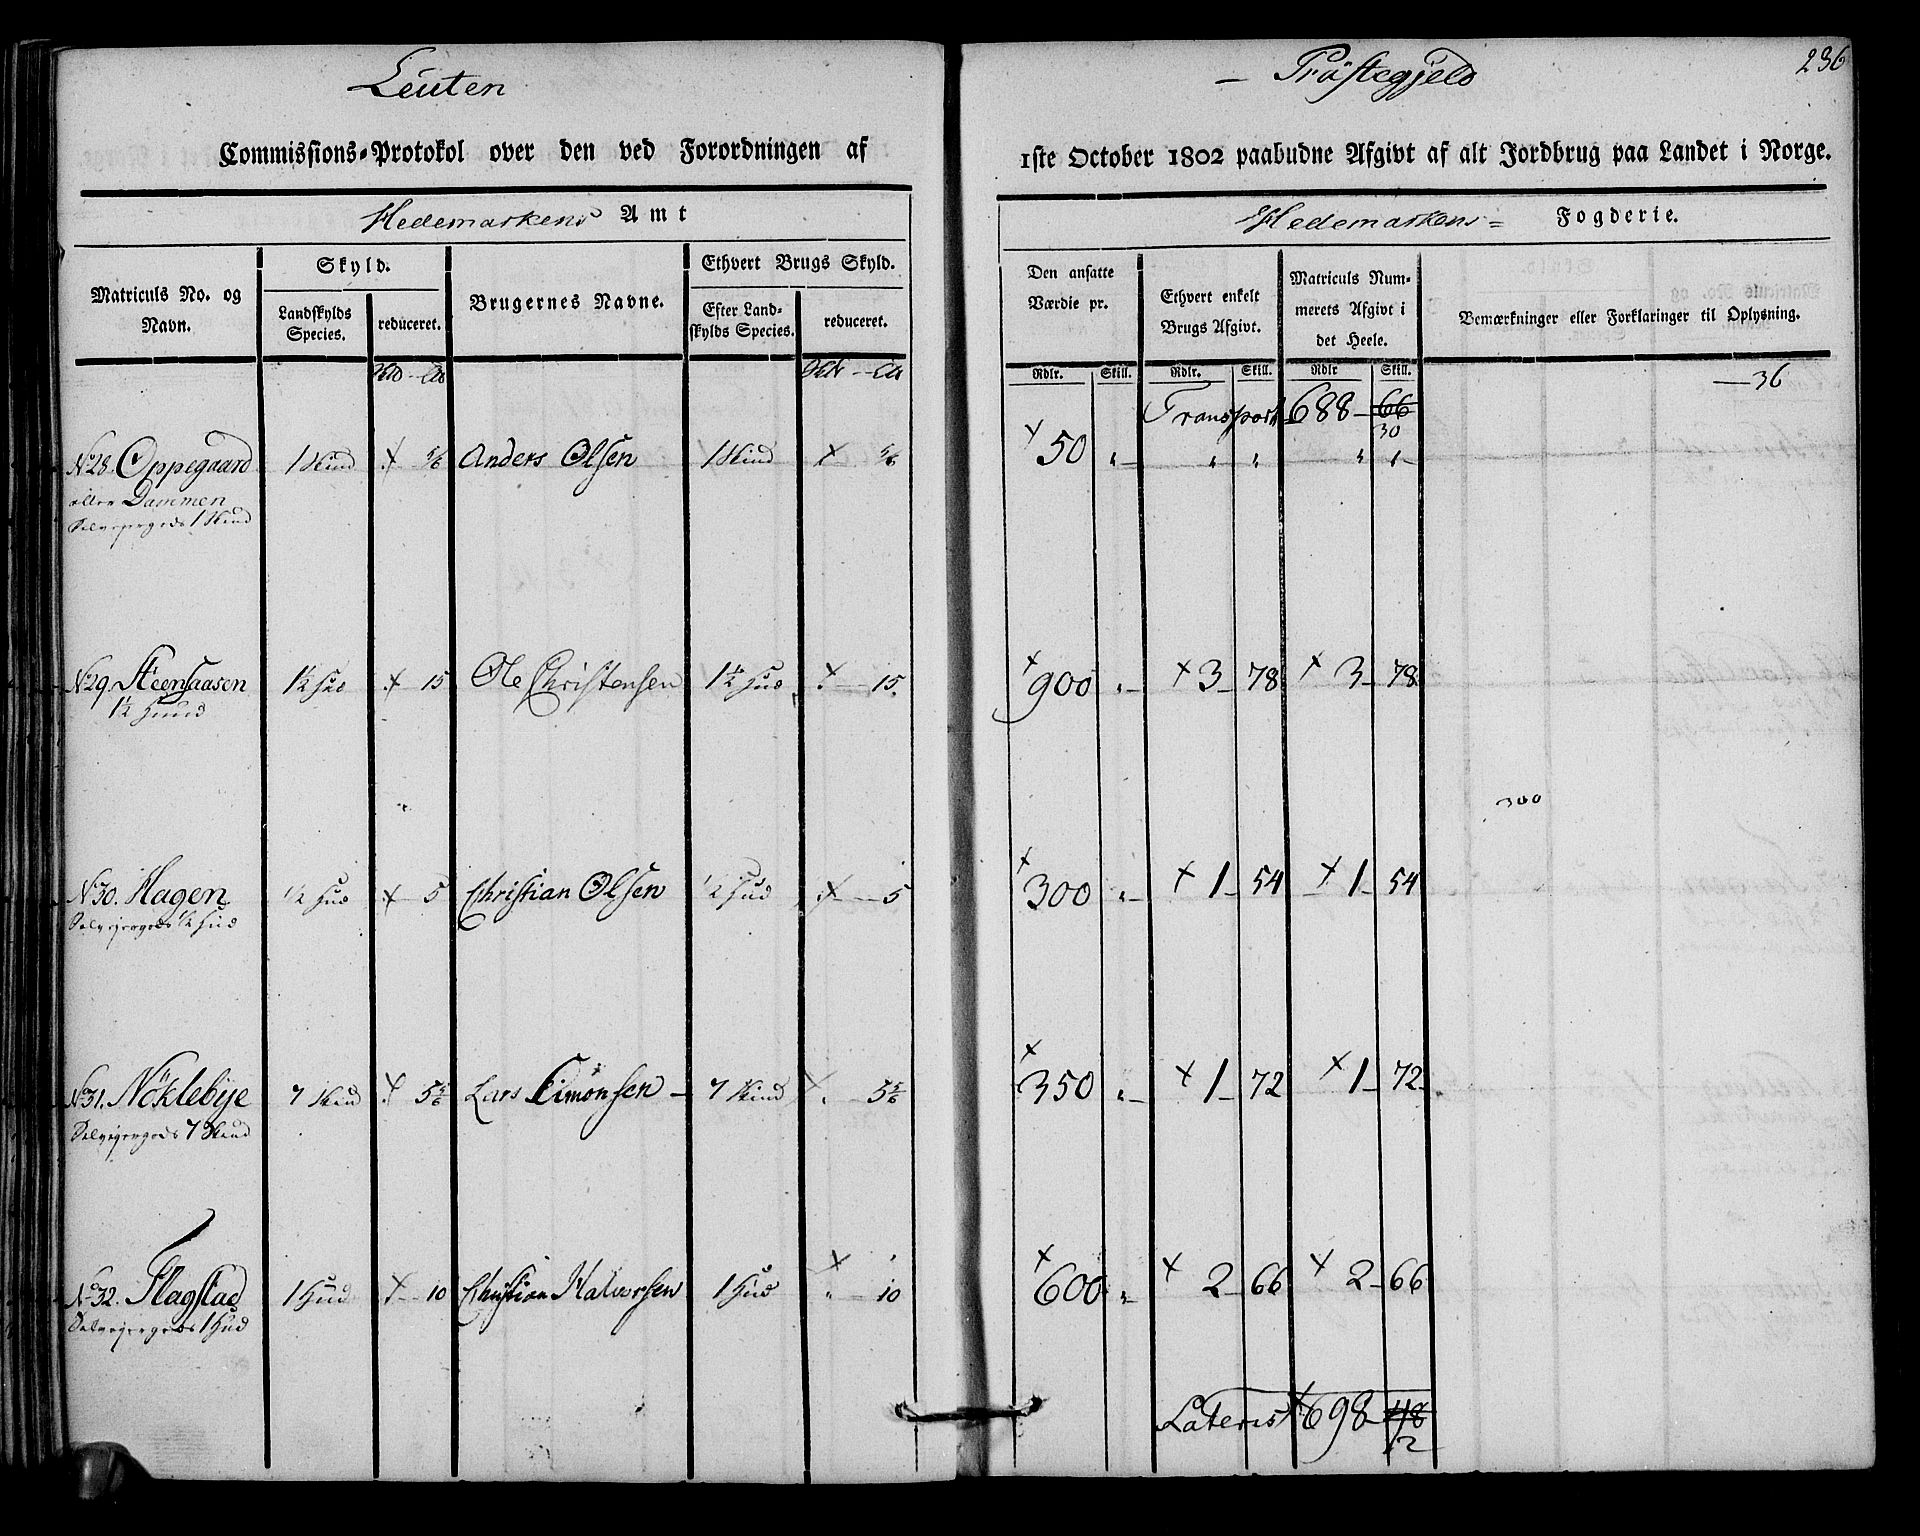 236
Leuten – Præstegjeld
Commissions-Protokol over den ved Forordningen af 1ste October 1802 paabudne Afgivt af alt Jordbrug paa Landet i Norge.
Hedemarkens Amt
Hedemarkens Fogderie.
Matriculs No. og Navn.
Skyld.
Landskylds Species.
reduceret.
Brugernes Navne.
Ethvert Brugs Skyld.
Efter Landskylds Species.
reduceret.
Den ansatte Værdie pr.
Ethvert enkelt Brugs Afgivt.
Matriculs Nummerets Afgivt i det Heele.
Bemærkninger eller Forklaringer til Oplysning.
Rdlr. Skill. Rdlr. Skill. Rdlr Skill.
36
Transport 688 66
30
No 28. Oppegaard 1 Skind 5/6 Anders Olsen 1 Skind 5/6 50
eller Dammen
Selvejergods 1 Skind
No 29. Steensaasen 1½ Hud 15 Ole Christensen 1½ Hud 15. 900 3 78 3 78
1½ Huud
300
No 30. Hagen ½ Hud 5 Christian Olsen ½ Hud 5 300 1 54 1 54
Selvejergods ½ Hud
No 31. Nöklebye 7 Skind 5 5/6 Lars Simonsen 7 Skind 5 5/6 350 1 72 1 72
Selvejergods 7 Skind
No 32. Flagstad 1 Hud 10 Christian Halvorsen 1 Hud 10 600 2 66 2 66
Selvejergods 1 Hud
Lateris 698 48
12